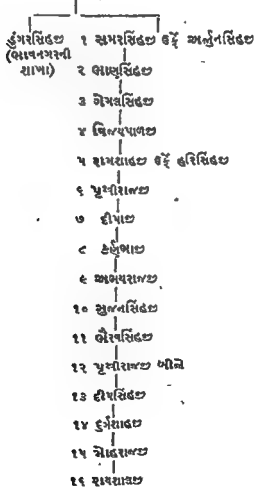 ડુંગરસિંહજી ૧ સમરસિંહજી ઉર્ફે અર્જુનસિંહજી
(ભાવનગરની
શાખા)
૨ ભાણસિંહજી
૩ ગેમલસિંહજી
૪ વિજયપાળજી
૫ રામશાહજી ઉર્ફે હરિસિંહજી
૬ પૃથીરાજજી
૭ દીપાજી
૮ કર્ણબાજી
૯ અભયરાજજી
૧૦ સુજનસિંહજી
૧૧ ભૈરવસિંહજી
૧૨ પૃથીરાજજી બીજો
૧૩ દીપસિંહજી
૧૪ દુર્ગશાહજી
૧૫ મોહરાજજી
૧૬ રાયશાલજી